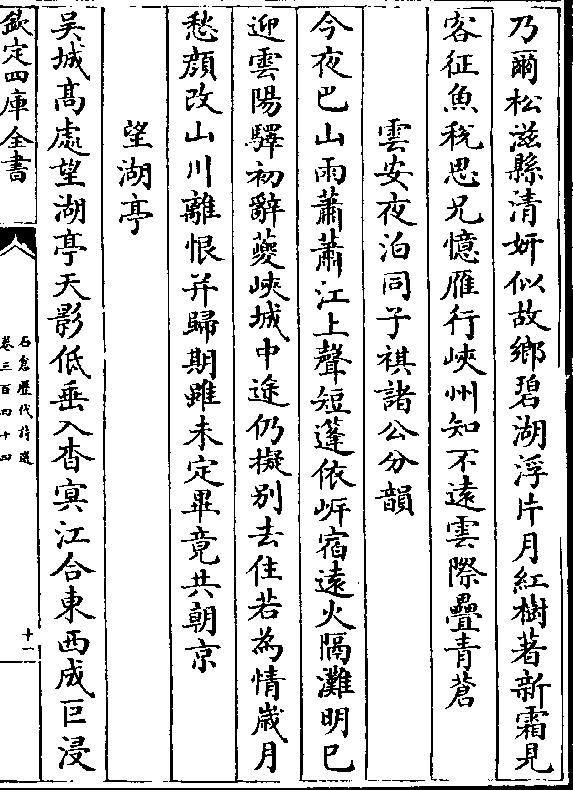 乃爾松滋縣清姸似故鄉碧湖浮片月紅樹著新霜見
客征魚稅思兄憶雁行峽州知不遠雲際疊青蒼
雲安夜泊同子祺諸公分韻
今夜巴山雨蕭蕭江上聲短蓬依岸宿遠火隔灘明已
迎雲陽驛初辭夔峽城中途仍擬别去住若為情歲月
愁顔改山川離恨并歸期雖未定畢竟共朝京
望湖亭
吴城髙處望湖亭天影低垂入杳㝠江合東西成巨浸
欽定四庫全書
石倉歷代詩選
卷三百四十四
十一